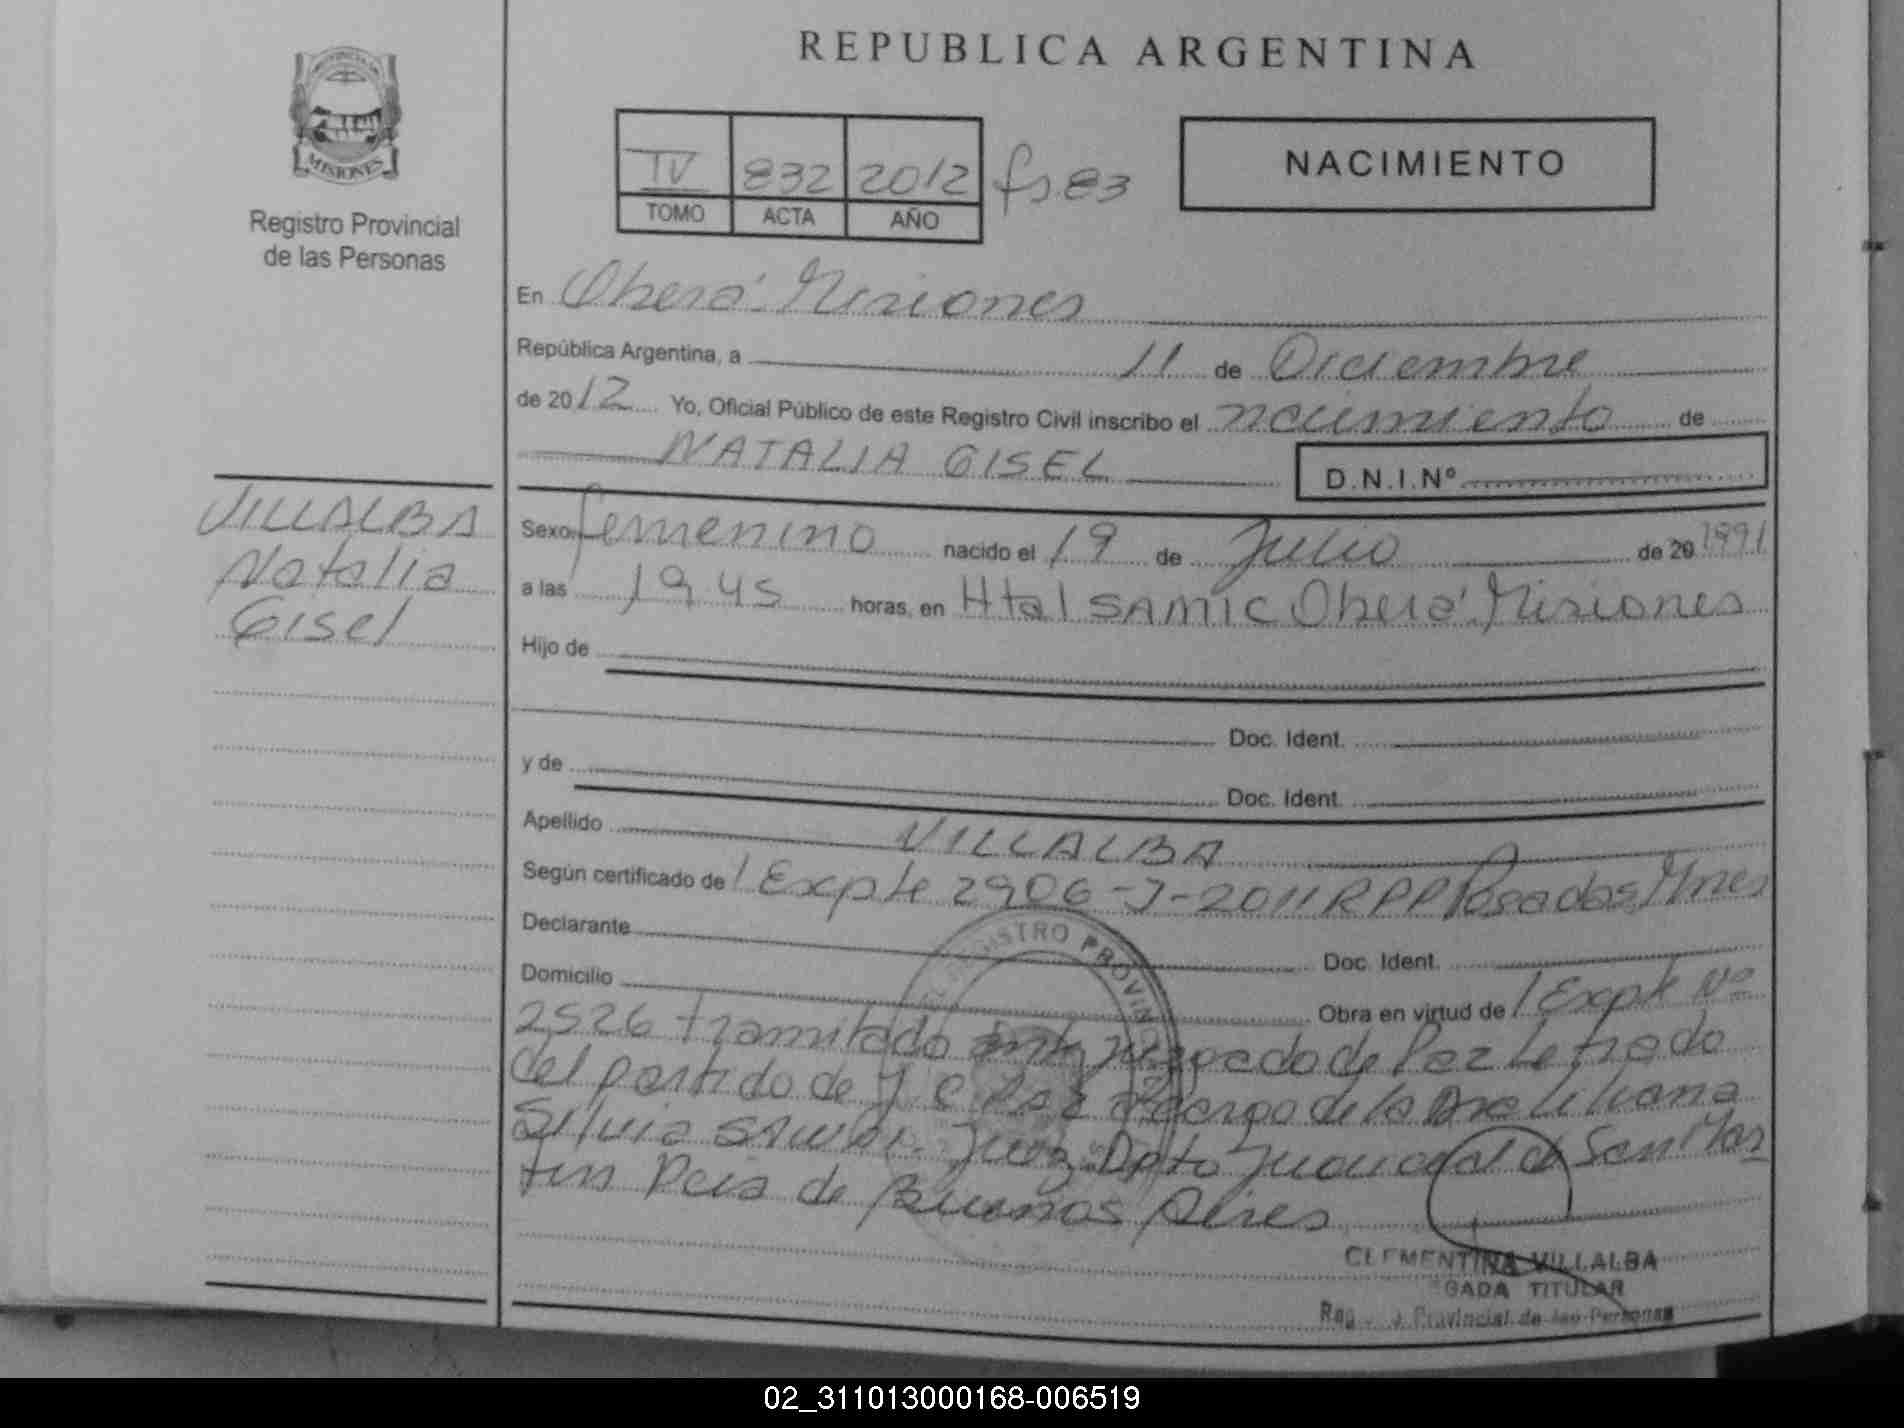 REPUBLICA ARGENTINA
PROVINCIA DE
MISIONES
Registro Provincial
de las Personas
IV 832 2012 fs 83
TOMO ACTA AÑO
NACIMIENTO
En Oberá. Misiones
República Argentina, a 11 de Diciembre
de 2012 Yo, Oficial Público de este Registro Civil inscribo el nacimiento de
NATALIA GISEL D.N.I.Nº
VILLALBA
Natalia
Gisel
Sexo: femenino nacido el 19 de Julio de 20 1991
a las 19 45 horas, en Htal SAMIC Oberá. Misiones
Hijo de
Doc. Ident.
y de
Doc. Ident.
Apellido VILLALBA
Según certificado de / Expte 2906-J-2011 RPP Posadas, Mnes
Declarante Doc. Ident.
Domicilio Obra en virtud de / Expte Nº
2526 tramitado ante Juzgado de Paz Letrado
del partido de J. C. Paz a cargo de la Dra Liliana
Silvia Juez. Dpto Judicial de San Mar
tin Pcia de Buenos Aires
REGISTRO PROVINC
CLEMENTINA VILLALBA
GADA TITULAR
Reg. Provincial de las Personas
02_311013000168-006519